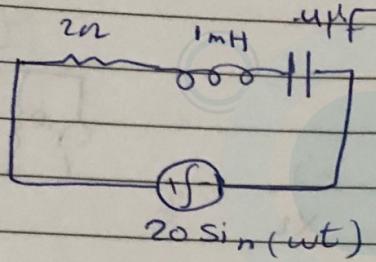 2Ω 1mH .4μf
20 Sin(ωt)